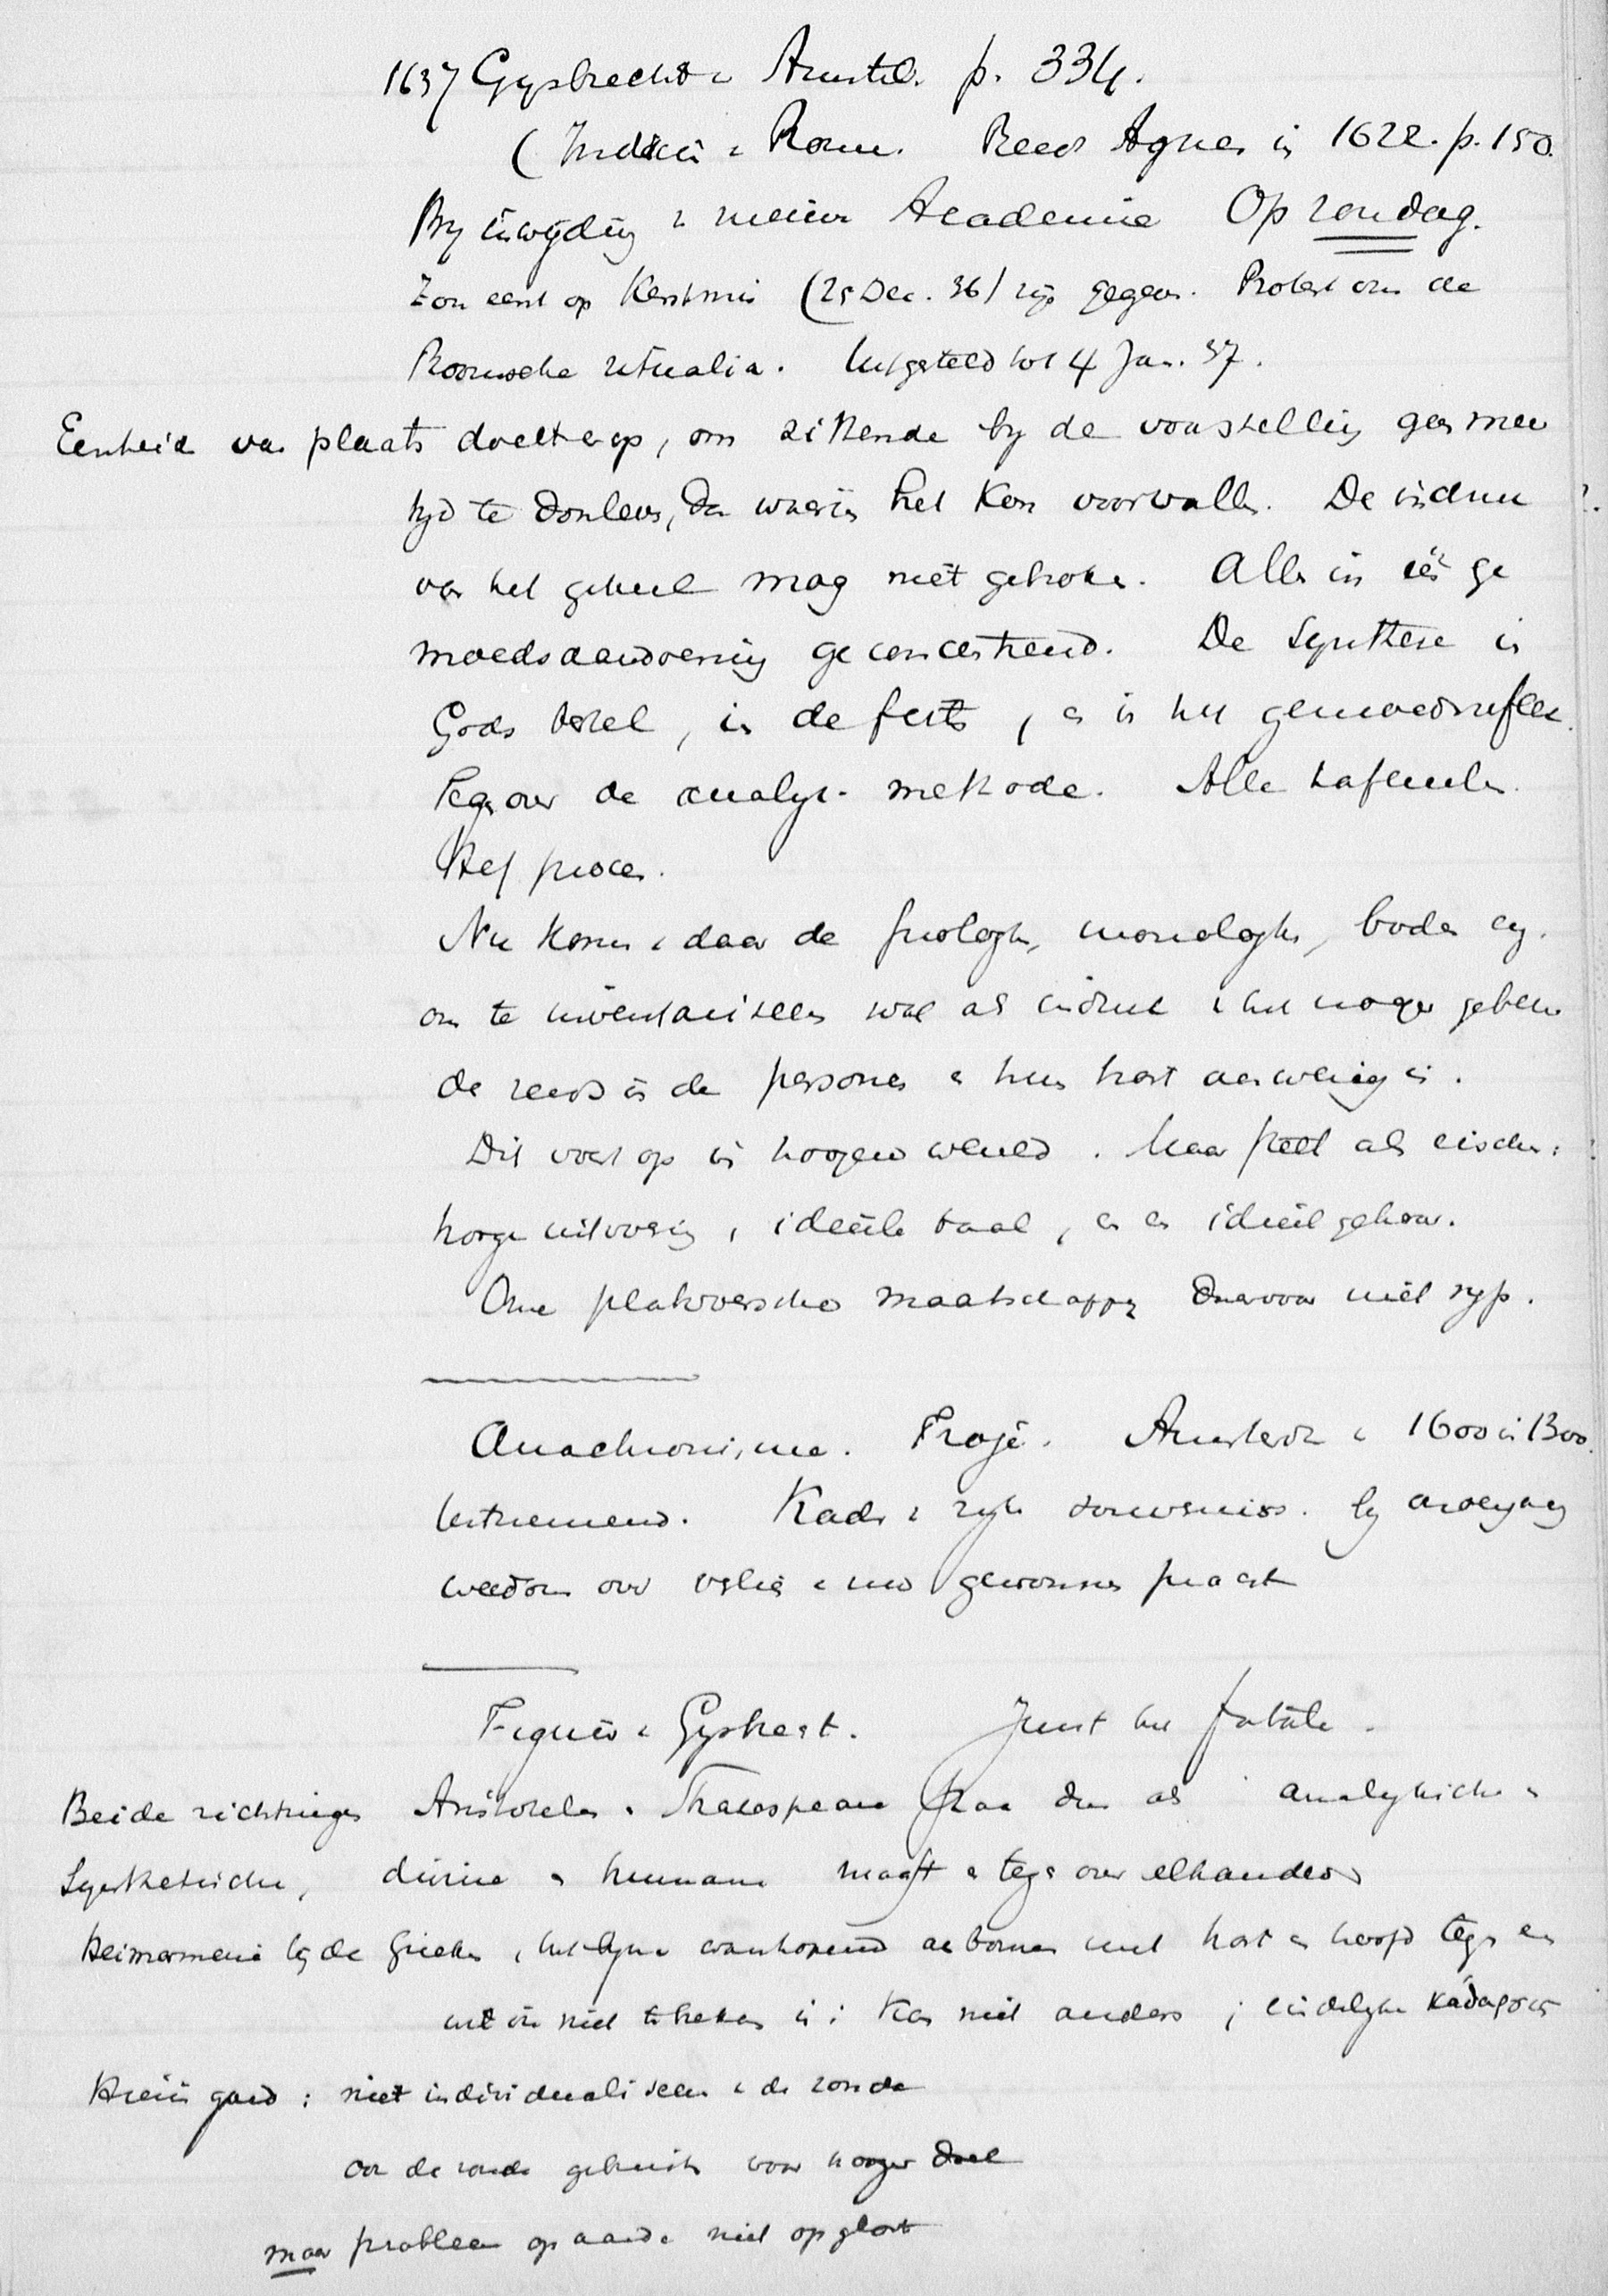 1637 Gysbrecht v Amstel. p. 334.
( Indicië v Rome. Reeds Agnes in 1622. p. 150.
By inwyding v nieuwe Academie Op zondag.
Zou eerst op Kerstmis (25 Dec. 36) zijn gegeven. Protest om de
Roomsche ritualia. Uitgesteld tot 4 Jan. 37.
Eenheid van plaats doelt er op, om zittende by de voorstelling geen meer
tyd te doorleven, dan waarin het kon voorvallen. De indruk
van het geheel mag niet gebroken. Alles in één ge
moedsaandoening geconcentreerd. De Synthese in
Gods bestel, in de feite, en in het gemoedsreflex.
Tegenover de analyt. methode. Alle tafeelen.
Het proces.
Nu komen daar de prologen, monologen, boden
om te inventariseeren wat als indruk v het hooger gebeuren
de reeds in de persones en hun hart aanwezig is.
Dit voert op in hoogere wereld. Maar stelt als eischen:
hooge uitvoering, ideëele taal, en en ideëel gehoor.
Onze platvoersche maatschappy daarvoor niet ryp.
Anachronisme. Troje. Amsterdam v 1600 in 1300.
bevreemend. Kads v ryke by
weedom over verlies v nieuw gewonnen pracht
Figuur v Gysbrecht. Juist het fatale.
Beide richtingen Aristoteles & Shakespeare staan dus als analytische &
Synthetische, divine & humane maast en tegenover elkander
Heimarmene by de Grieken, het lyne wanhopend aanbonzen met hart en hoofd tegen en
wat niet te breken is: Kan niet anders; eindelyke
niet individualiseeren v de zonde
van de zonde gebruik voor hooger doel
maar probleem op aarde niet opgelost